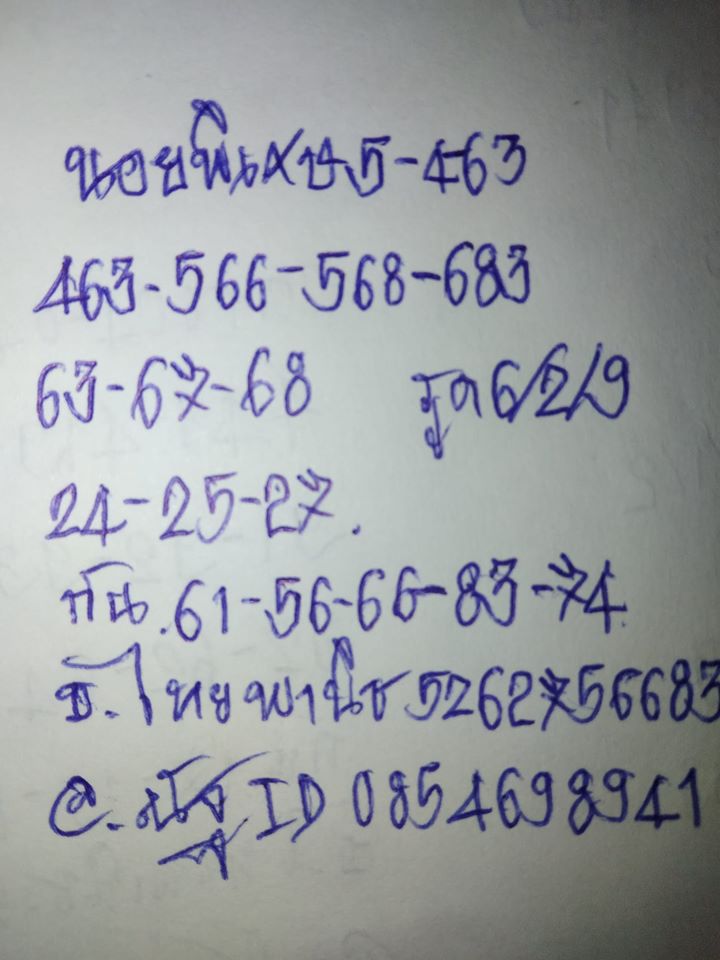 นอยพิเศษ5-463
463-566-568-683
63-67-68 รูด6/2/9
24-25-27.
กัน.61-56-66-83-74.
ธ.ไทยพานิช 52627 56683
อ.ณัฐ ID 0854698941